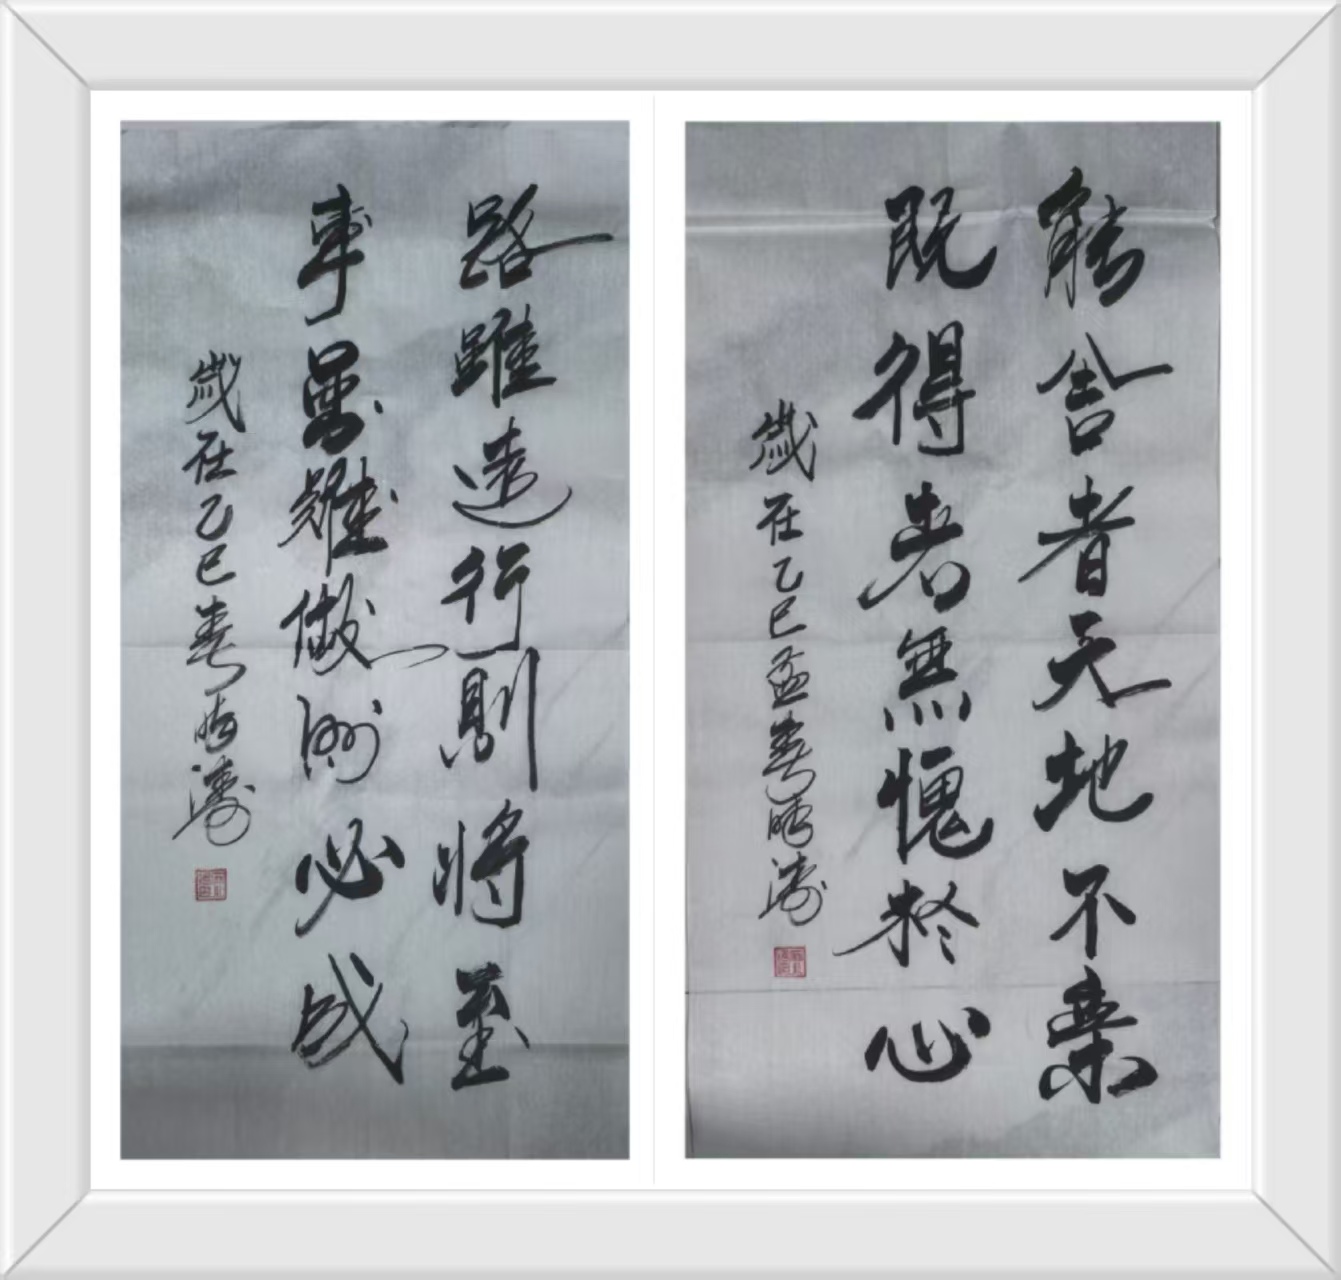 能舍者天地不棄
既得者無愧於心
歲在乙巳孟春濤
路雖遠行則將至
事虽難做則必成
歲在乙巳春濤